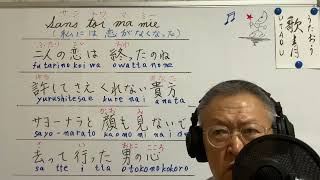 サン トワ マ ミー
Sans toi ma mie
(私には恋がなくなった)
ふたり こい おわ
二人の恋は 終ったのね
futarinokoiwa owattanone
ゆる あなた
許してさえくれない貴方
yurushitesae kurenai anata
かお み
サヨーナラと 顔も見ないで
sayo-narato kaomominaide
さ い おとこ こころ
去って行った 男の心
satte itta otokonokokoro
うたおう
歌青
UTAOU